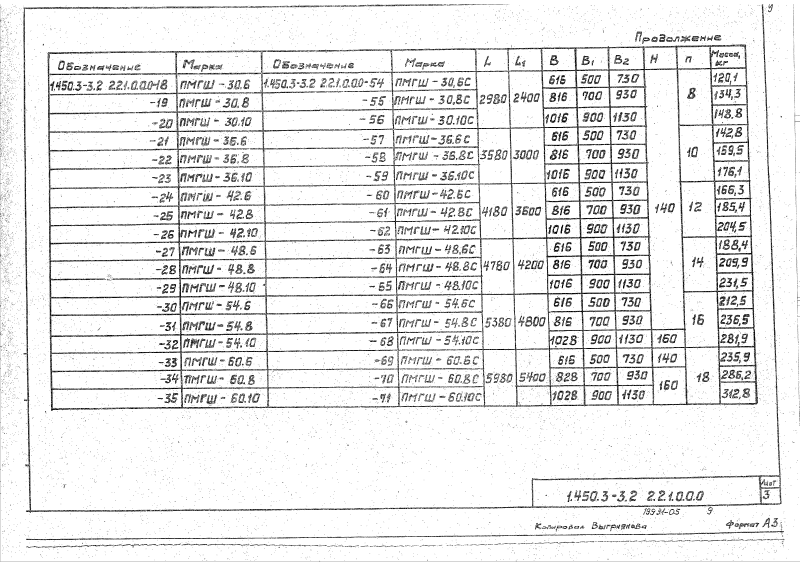 9
Продолжение
Обозначение Марка Обозначение Марка L L1 B B1 B2 H n Масса, кг
1.450.3-3.2 2.2.1.0.0.0-18 ПМГШ-30.6 1.450.3-3.2 2.2.1.0.0.0-54 ПМГШ-30,6С 2980 2400 616 500 730 140 8 120,1
-19 ПМГШ-30,8 -55 ПМГШ-30,8С 816 700 930 134,3
-20 ПМГШ-30.10 -56 ПМГШ-30.10С 1016 900 1130 148,8
-21 ПМГШ-36.6 -57 ПМГШ-36.6С 3580 3000 616 500 730 10 142,8
-22 ПМГШ-36.8 -58 ПМГШ-36.8С 816 700 930 159,5
-23 ПМГШ-36.10 -59 ПМГШ-36.10С 1016 900 1130 176,1
-24 ПМГШ-42.6 -60 ПМГШ-42.6С 4180 3600 616 500 730 12 166,3
-25 ПМГШ-42.8 -61 ПМГШ-42.8С 816 700 930 185,4
-26 ПМГШ-42.10 -62 ПМГШ-42.10С 1016 900 1130 204,5
-27 ПМГШ-48.6 -63 ПМГШ-48.6С 4780 4200 616 500 730 14 188,4
-28 ПМГШ-48.8 -64 ПМГШ-48.8С 816 700 930 209,9
-29 ПМГШ-48.10 -65 ПМГШ-48.10С 1016 900 1130 231,5
-30 ПМГШ-54.6 -66 ПМГШ-54.6С 5380 4800 616 500 730 16 212,5
-31 ПМГШ-54.8 -67 ПМГШ-54.8С 816 700 930 236,5
-32 ПМГШ-54.10 -68 ПМГШ-54.10С 1028 900 1130 160 281,9
-33 ПМГШ-60.6 -69 ПМГШ-60.6С 5980 5400 616 500 730 140 18 235,9
-34 ПМГШ-60.8 -70 ПМГШ-60.8С 828 700 930 160 286,2
-35 ПМГШ-60.10 -71 ПМГШ-60.10С 1028 900 1130 312,8
1.450.3-3.2 2.2.1.0.0.0
Лист
3
19931-05 9
Копировал Выгриянова Формат А3